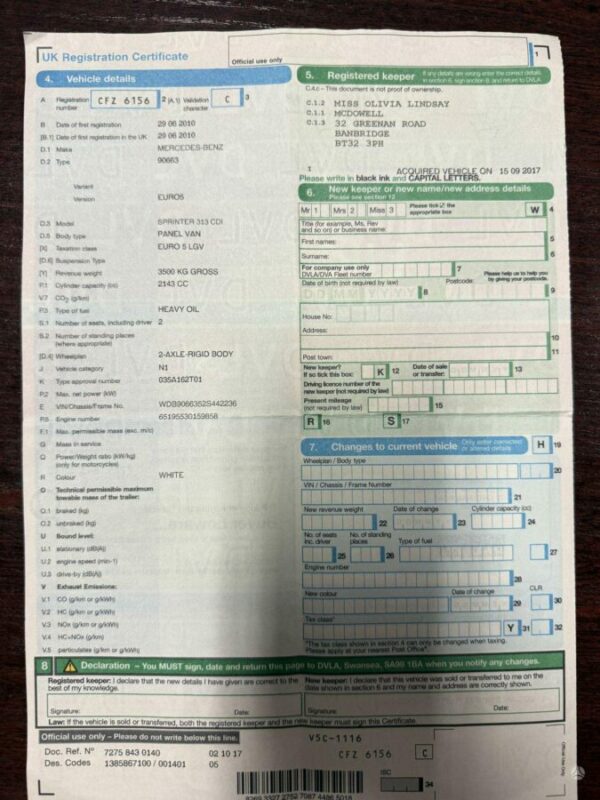 UK Registration Certificate
Official use only
1
4. Vehicle details
A Registration number CFZ 6156 2 [A.1] Validation character C 3
B Date of first registration 29 06 2010
[B.1] Date of first registration in the UK 29 06 2010
D.1 Make MERCEDES-BENZ
D.2 Type 90663
Variant
Version EURO5
D.3 Model SPRINTER 313 CDI
D.5 Body type PANEL VAN
[X] Taxation class EURO 5 LGV
[D.6] Suspension Type
[Y] Revenue weight 3500 KG GROSS
P.1 Cylinder capacity (cc) 2143 CC
V.7 CO2 (g/km)
P.3 Type of fuel HEAVY OIL
S.1 Number of seats, including driver 2
S.2 Number of standing places
(where appropriate)
[D.4] Wheelplan 2-AXLE-RIGID BODY
J Vehicle category N1
K Type approval number 035A162T01
P.2 Max. net power (kW)
E VIN/Chassis/Frame No. WDB9066352S442236
P.5 Engine number 65195530159858
F.1 Max. permissible mass (exc. m/c)
G Mass in service
Q Power/Weight ratio (kW/kg)
(only for motorcycles)
R Colour WHITE
O Technical permissible maximum
towable mass of the trailer:
O.1 braked (kg)
O.2 unbraked (kg)
U Sound level:
U.1 stationary (dB(A))
U.2 engine speed (min-1)
U.3 drive-by (dB(A))
V Exhaust Emissions:
V.1 CO (g/km or g/kWh)
V.2 HC (g/km or g/kWh)
V.3 NOx (g/km or g/kWh)
V.4 HC+NOx (g/km)
V.5 particulates (g/km or g/kWh)
5. Registered keeper If any details are wrong enter the correct details
in section 6, sign section 8, and return to DVLA
C.4.c – This document is not proof of ownership.
C.1.2 MISS OLIVIA LINDSAY
C.1.1 MCDOWELL
C.1.3 32 GREENAN ROAD
BANBRIDGE
BT32 3PH
ACQUIRED VEHICLE ON 15 09 2017
Please write in black ink and CAPITAL LETTERS.
6. New keeper or new name/new address details
Please see section 12
Mr 1 Mrs 2 Miss 3 Please tick the appropriate box W 4
Title (for example, Ms, Rev
and so on) or business name:
First names: 5
Surname: 6
For company use only
DVLA/DVA Fleet number 7 Please help us to help you
by giving your postcode.
Date of birth (not required by law) 8 Postcode: 9
House No:
Address: 10
Post town: 11
New keeper?
If so tick this box: K 12 Date of sale or transfer: 13
Driving licence number of the
new keeper (not required by law)
Present mileage
(not required by law) 15
R 16 S 17
7. Changes to current vehicle Only enter corrected
or altered details H 19
Wheelplan / Body type 20
VIN / Chassis / Frame Number 21
New revenue weight 22 Date of change 23 Cylinder capacity (cc) 24
No. of seats inc. driver 25 No. of standing places 26 Type of fuel 27
Engine number 28
New colour Date of change 29 CLR 30
Tax class* Y 31 32
*The tax class shown in section 4 can only be changed when taxing.
Please apply at your nearest Post Office®.
8 Declaration – You MUST sign, date and return this page to DVLA, Swansea, SA99 1BA when you notify any changes.
Registered keeper: I declare that the new details I have given are correct to the
best of my knowledge.
Signature: Date:
New keeper: I declare that this vehicle was sold or transferred to me on the
date shown in section 6 and my name and address are correctly shown.
Signature: Date:
Law: If the vehicle is sold or transferred, both the registered keeper and the new keeper must sign this Certificate.
Official use only – Please do not write below this line.
Doc. Ref. Nº 7275 843 0140 02 10 17
Des. Codes 1385867100 / 001401 05
V5C-1116
CFZ 6156 C
ISC 34
Official Use Only